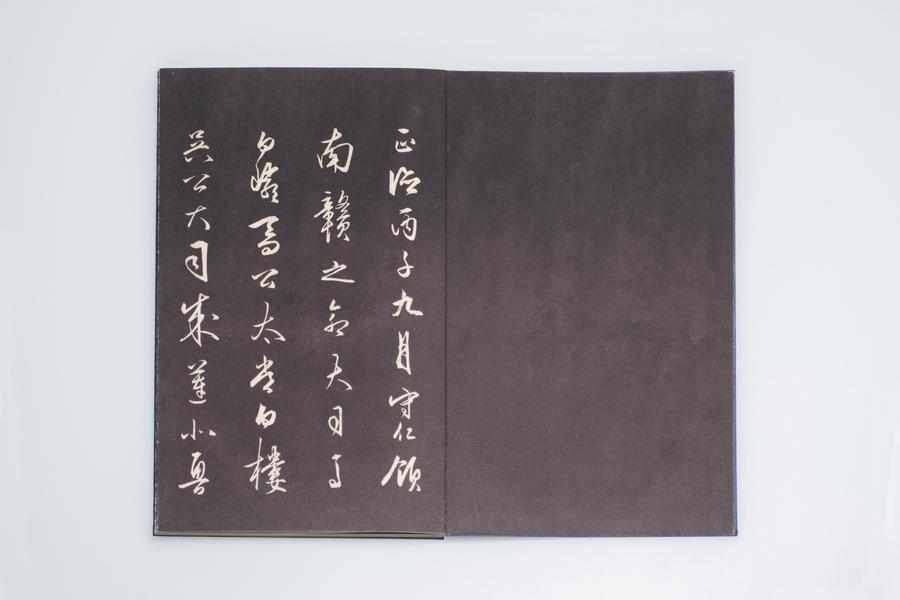 正德丙子九月守仁領
南贛之命大司馬
白巖喬公太常白樓
吳公大司成蓮北魯